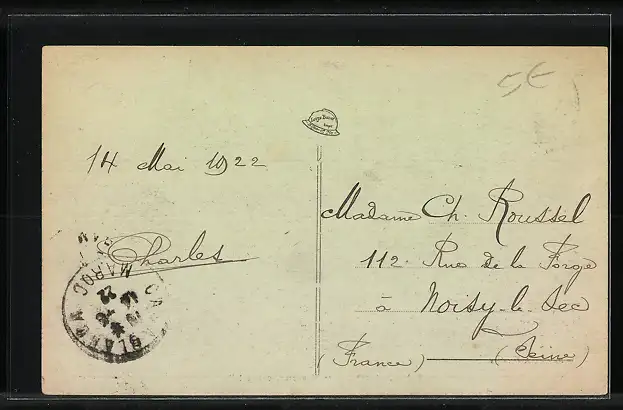 5€
14 Mai 1922
Charles
Madame Ch. Roussel
112. Rue de la Forge
à Noisy-le-Sec
(France) — (Seine)
MAROC
22